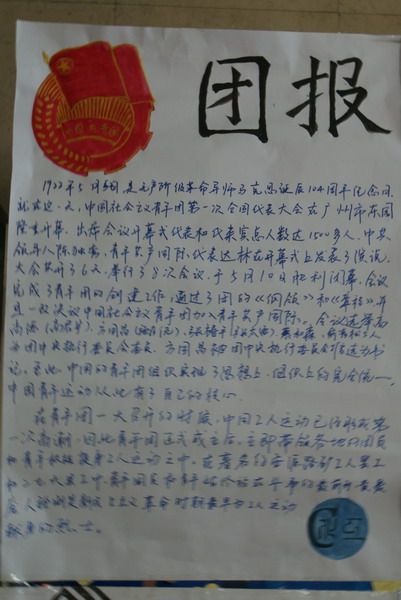 团报
1922年5月5日,是无产阶级革命导师马克思诞辰104周年纪念日
就在这一天,中国社会主义青年团第一次全国代表大会在广州市东园
隆重开幕。出席会议开幕式代表和代表实总人数达1500多人,中共
领导人陈独秀,青年共产国际代表达林在开幕式上发表了演说。
大会共开了6天,举行了8次会议,于5月10日胜利闭幕。会议
完成了青年团的创建工作,通过了团的《纲领》和《章程》,并
且一致决议中国社会主义青年团加入青年共产国际。会议选举高
为团中央执行委员会委员。方国昌被团中央执行委员会推选为书
记。至此,中国的青年团组织实现了思想上、组织上的完全统一,
中国青年运动从此有了自己的核心。
在青年团一大召开的时候,中国工人运动已经形成第
一次高潮,因此青年团正式成立后,立即带领各地的团员
和青年积极投身工人运动之中。在著名的安源路矿工人罢工
和二七大罢工中,青年团员和青年
革命时期最早为工人运动
献身的烈士。